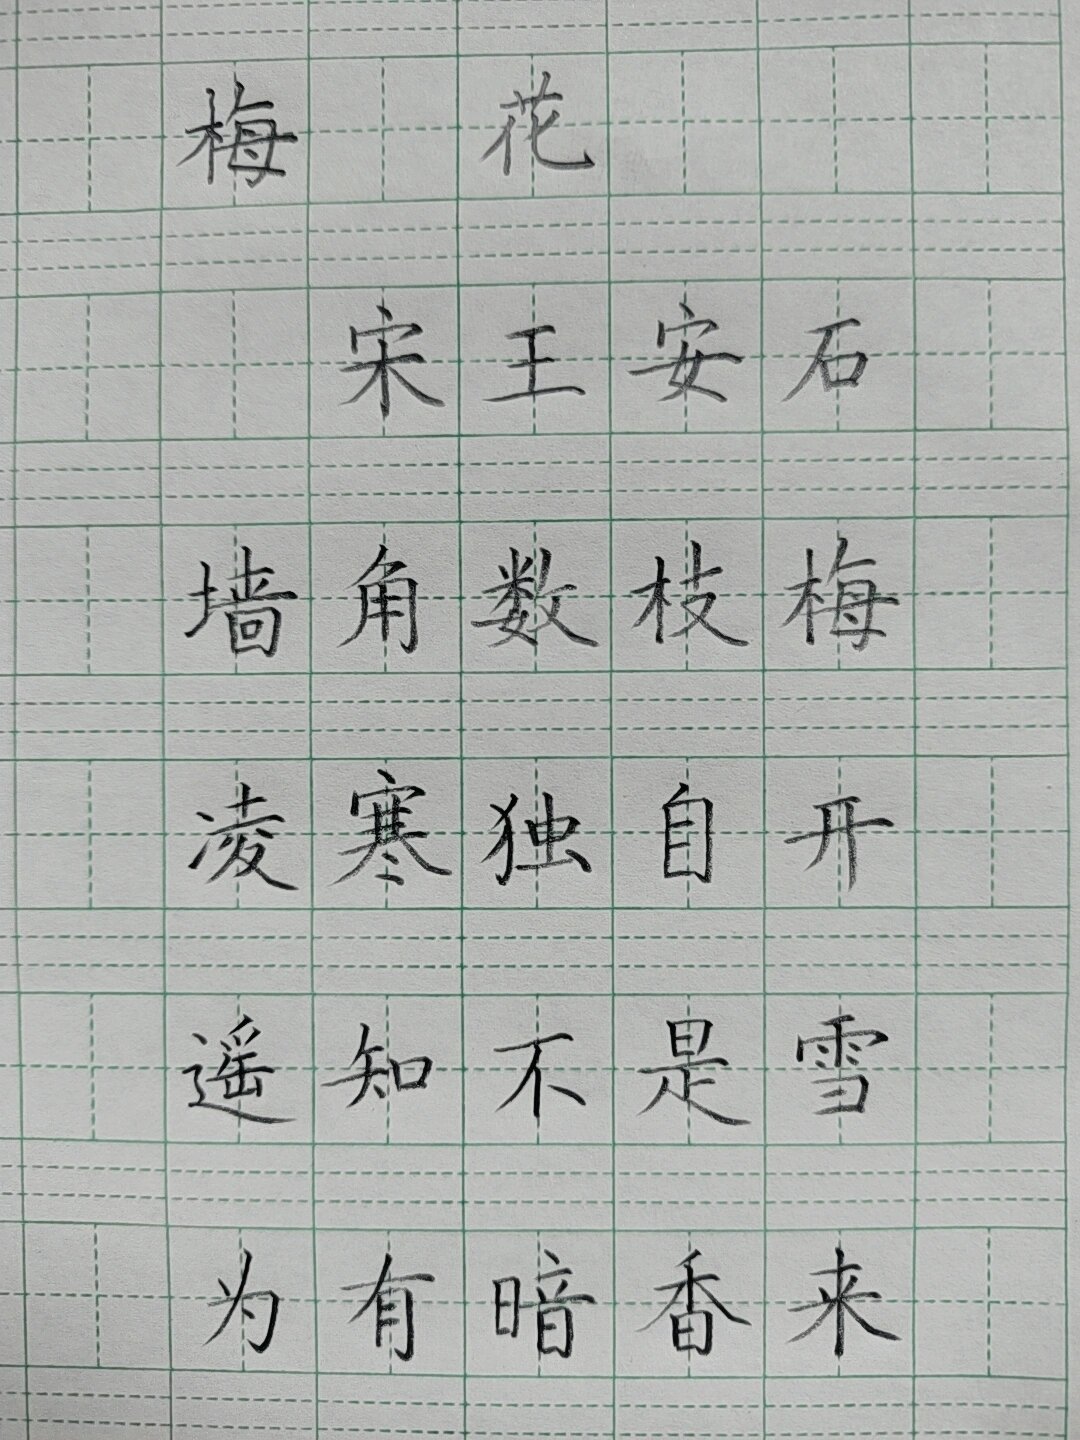 梅花
宋王安石
墙角数枝梅
凌寒独自开
遥知不是雪
为有暗香来